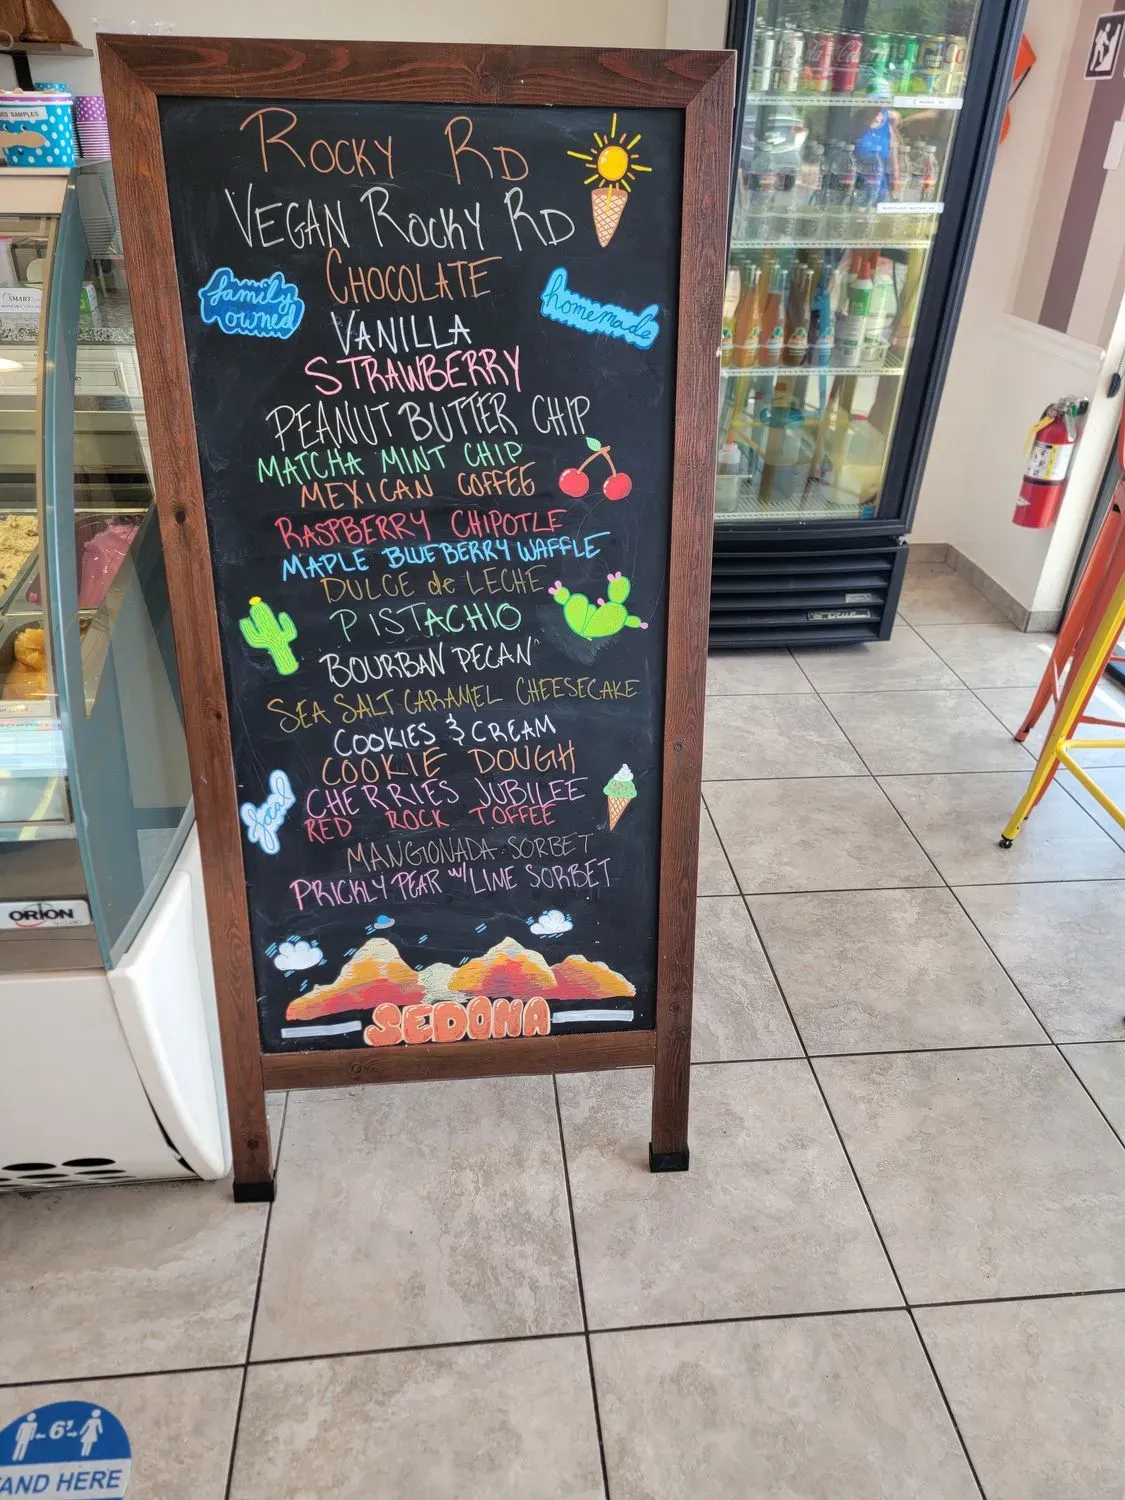 ROCKY RD
VEGAN ROCKY RD
CHOCOLATE
family owned
homemade
VANILLA
STRAWBERRY
PEANUT BUTTER CHIP
MATCHA MINT CHIP
MEXICAN COFFEE
RASPBERRY CHIPOTLE
MAPLE BLUEBERRY WAFFLE
DULCE de LECHE
PISTACHIO
BOURBAN PECAN
SEA SALT CARAMEL CHEESECAKE
COOKIES & CREAM
COOKIE DOUGH
CHERRIES JUBILEE
local
RED ROCK TOFFEE
MANGIONADA SORBET
PRICKLY PEAR W/ LINE SORBET
SEDONA
SAMPLES
SMART
ORION
6'
AND HERE